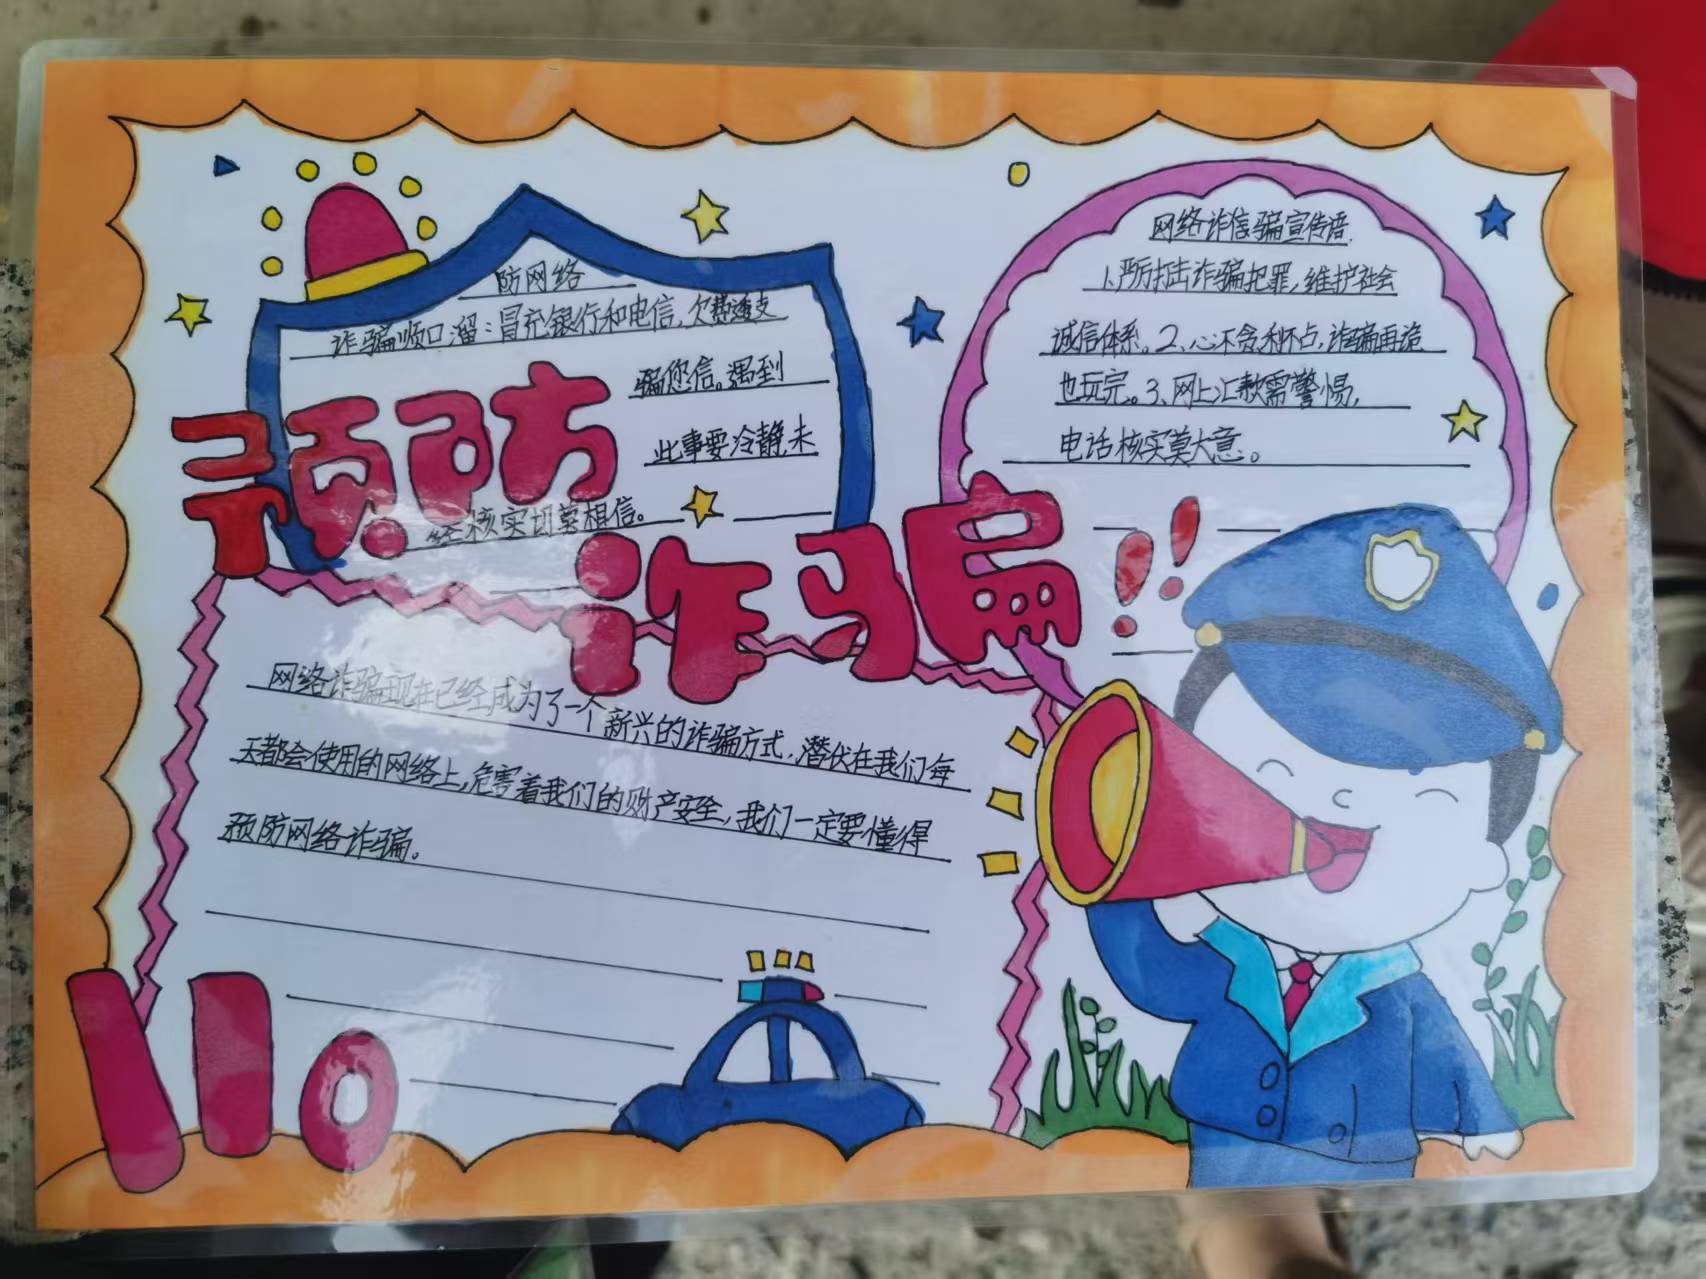 防网络
诈骗顺口溜：冒充银行和电信，欠费透支
骗您信。遇到
此事要冷静，未
经核实切莫相信。
预防
诈骗!!
网络诈信骗宣传语.
1.严厉打击诈骗犯罪，维护社会
诚信体系。2、心不贪利怀占，诈骗再诡
也玩完。3、网上汇款需警惕，
电话核实莫大意。
网络诈骗现在已经成为了一个新兴的诈骗方式，潜伏在我们每
天都会使用的网络上，危害着我们的财产安全，我们一定要懂得
预防网络诈骗。
110